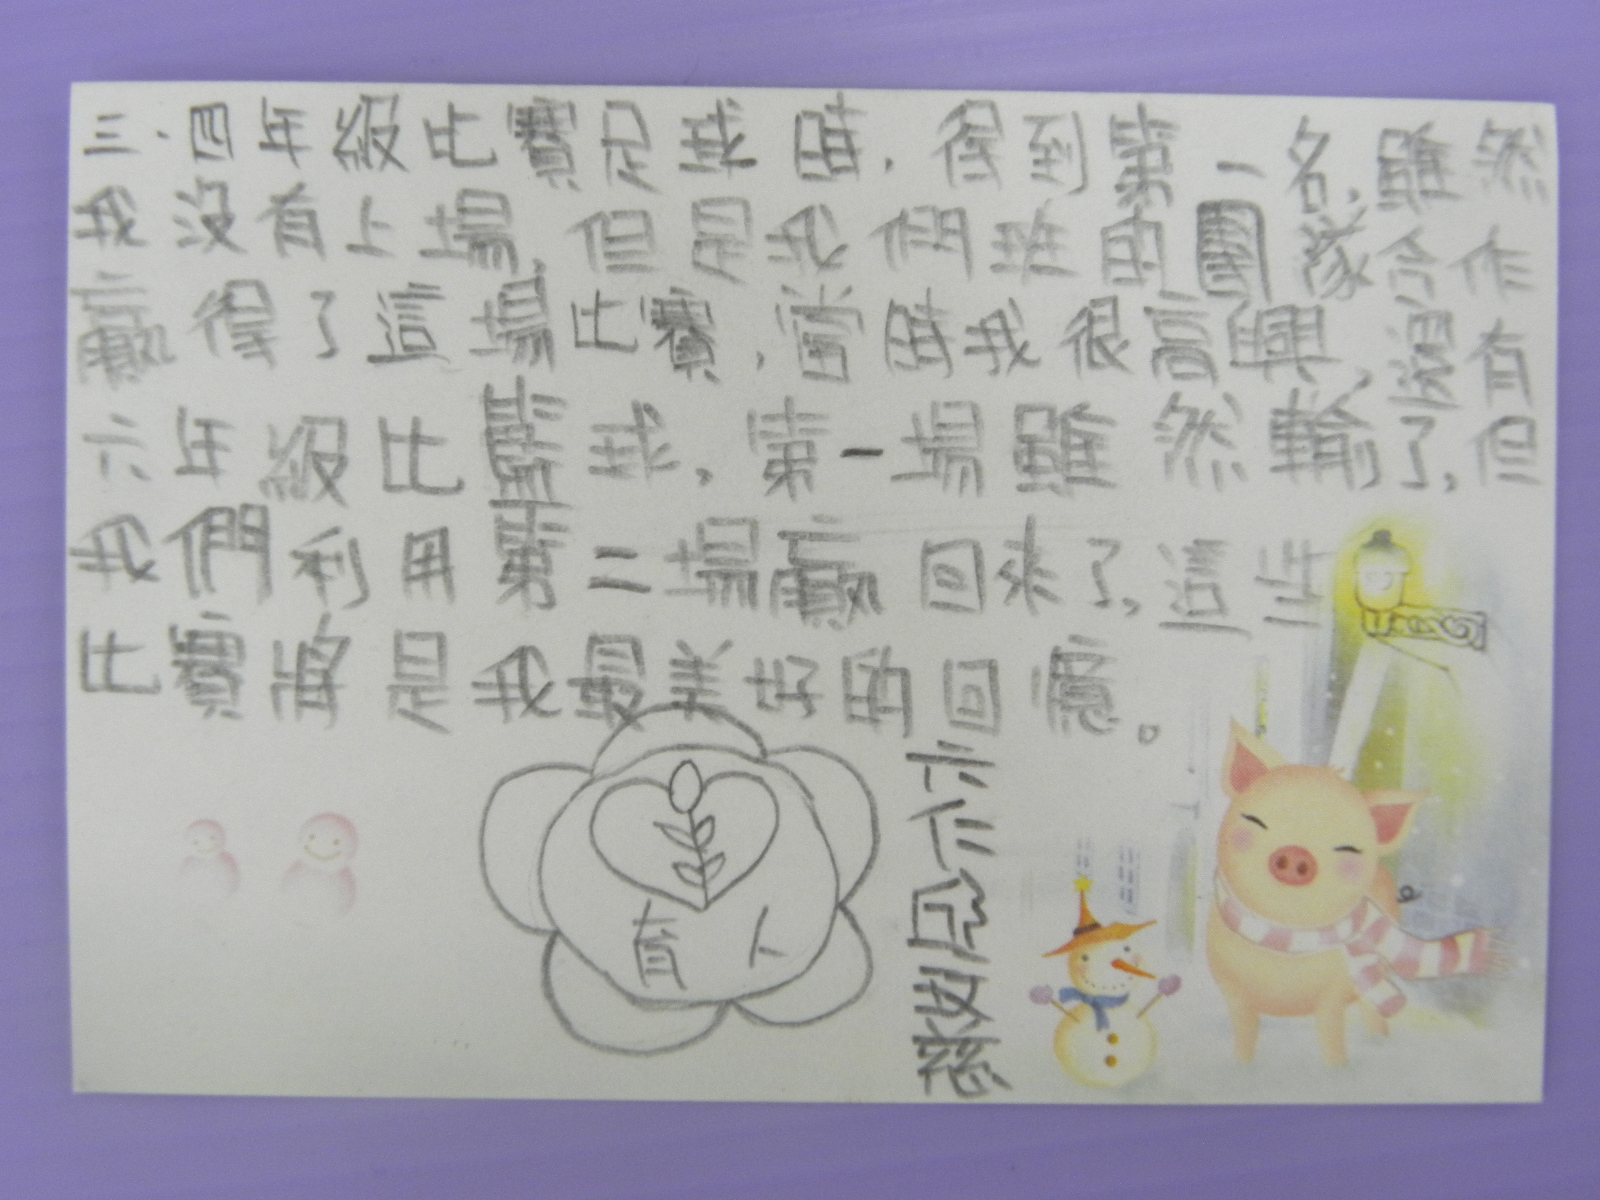 三.四年級比賽足球時,得到第一名,雖然
我沒有上場,但是我們班的團隊合作
贏得了這場比賽,當時我很高興,還有
六年級比籃球,第一場雖然輸了,但
我們利用第二場贏回來了,這些
比賽將是我最美好的回憶。
育人